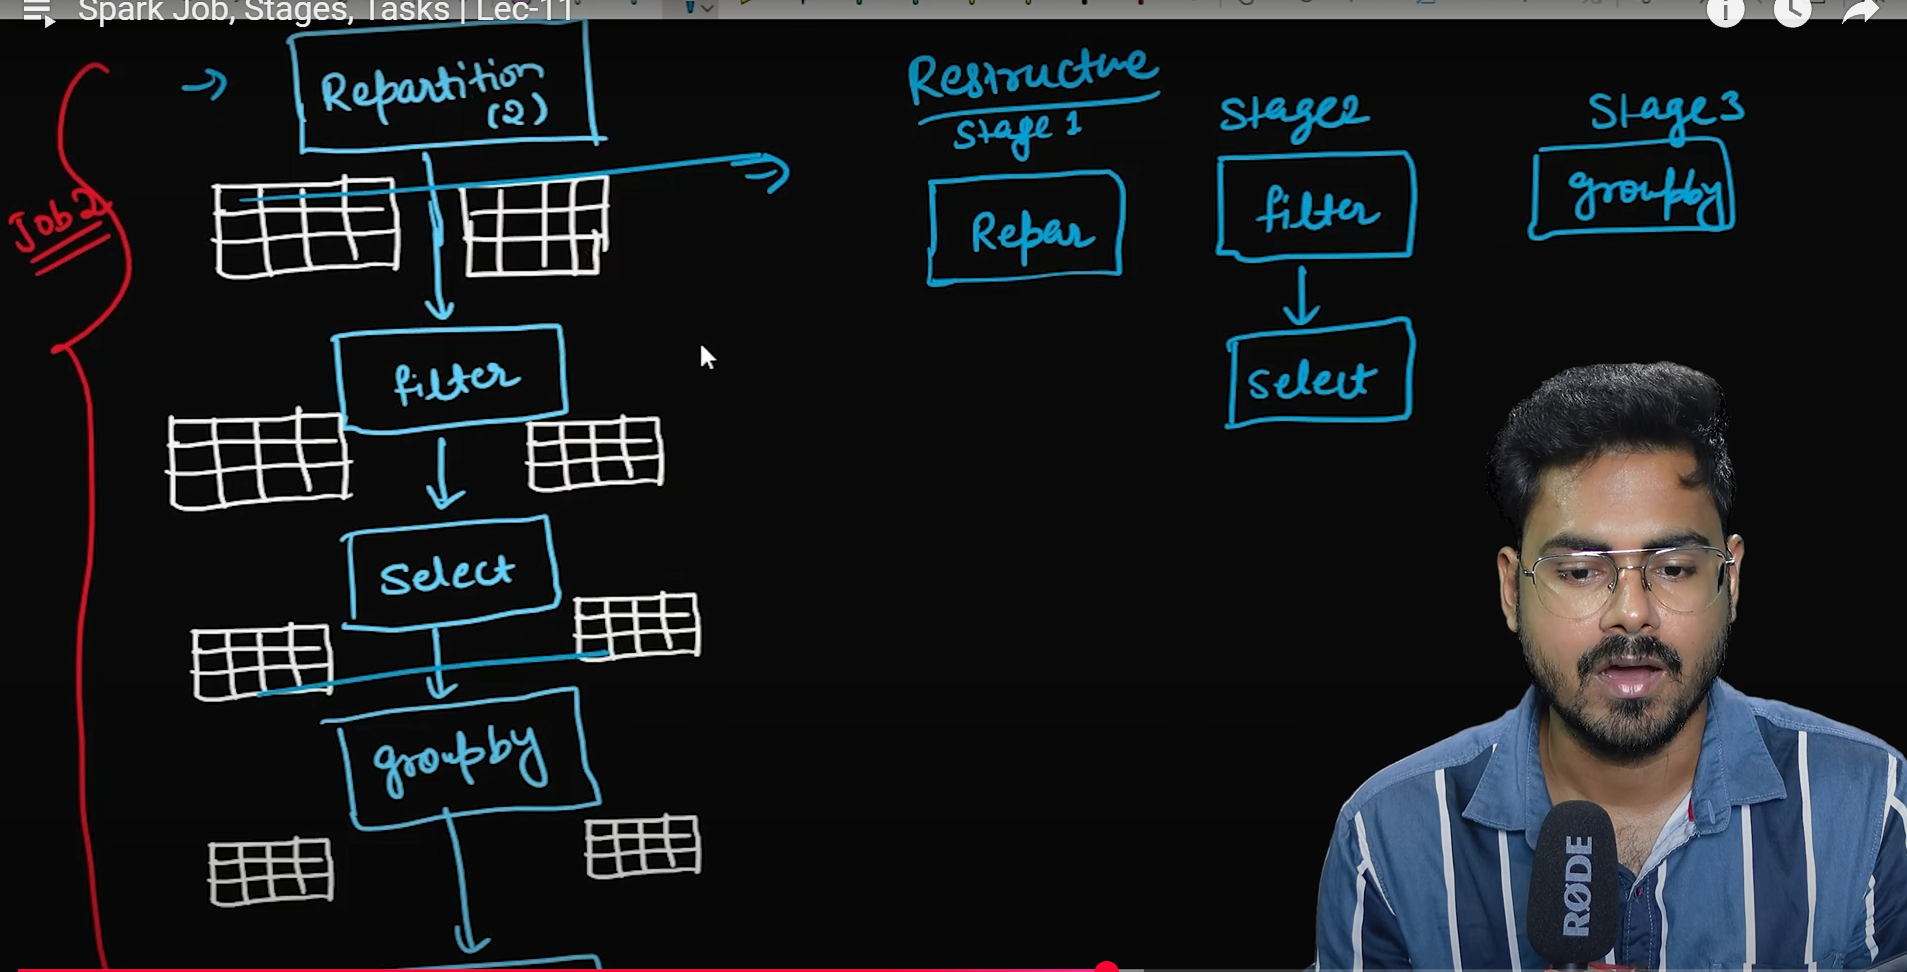 Spark Job, Stages, Tasks | Lec-11
Repartition
(2)
Job 2
filter
Select
groupby
Restructure
Stage 1
Repar
Stage2
filter
Select
Stage 3
groupby
RØDE